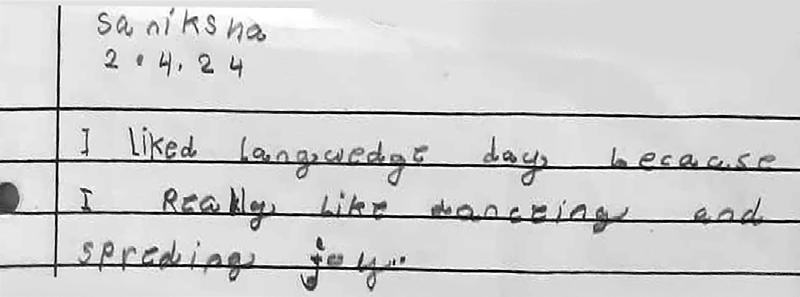 saniksha
2.4.24
I liked langwedge day becacse
I Really like danceing and
spreding joy..